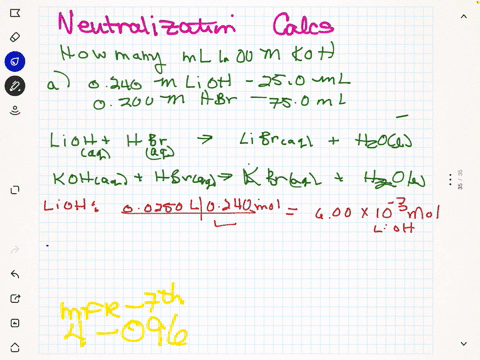 Neutralization Calcs
How many mL 1.00 M KOH
a) 0.240 M LiOH - 25.0 mL
0.200 M HBr - 75.0 mL
LiOH + HBr → LiBr(aq) + H2O(l)
(aq) (aq)
KOH(aq) + HBr(aq) → KBr(aq) + H2O(l)
LiOH: 0.0250 L | 0.240 mol = 6.00 × 10^-3 mol
L LiOH
MFR - 7th
4-096